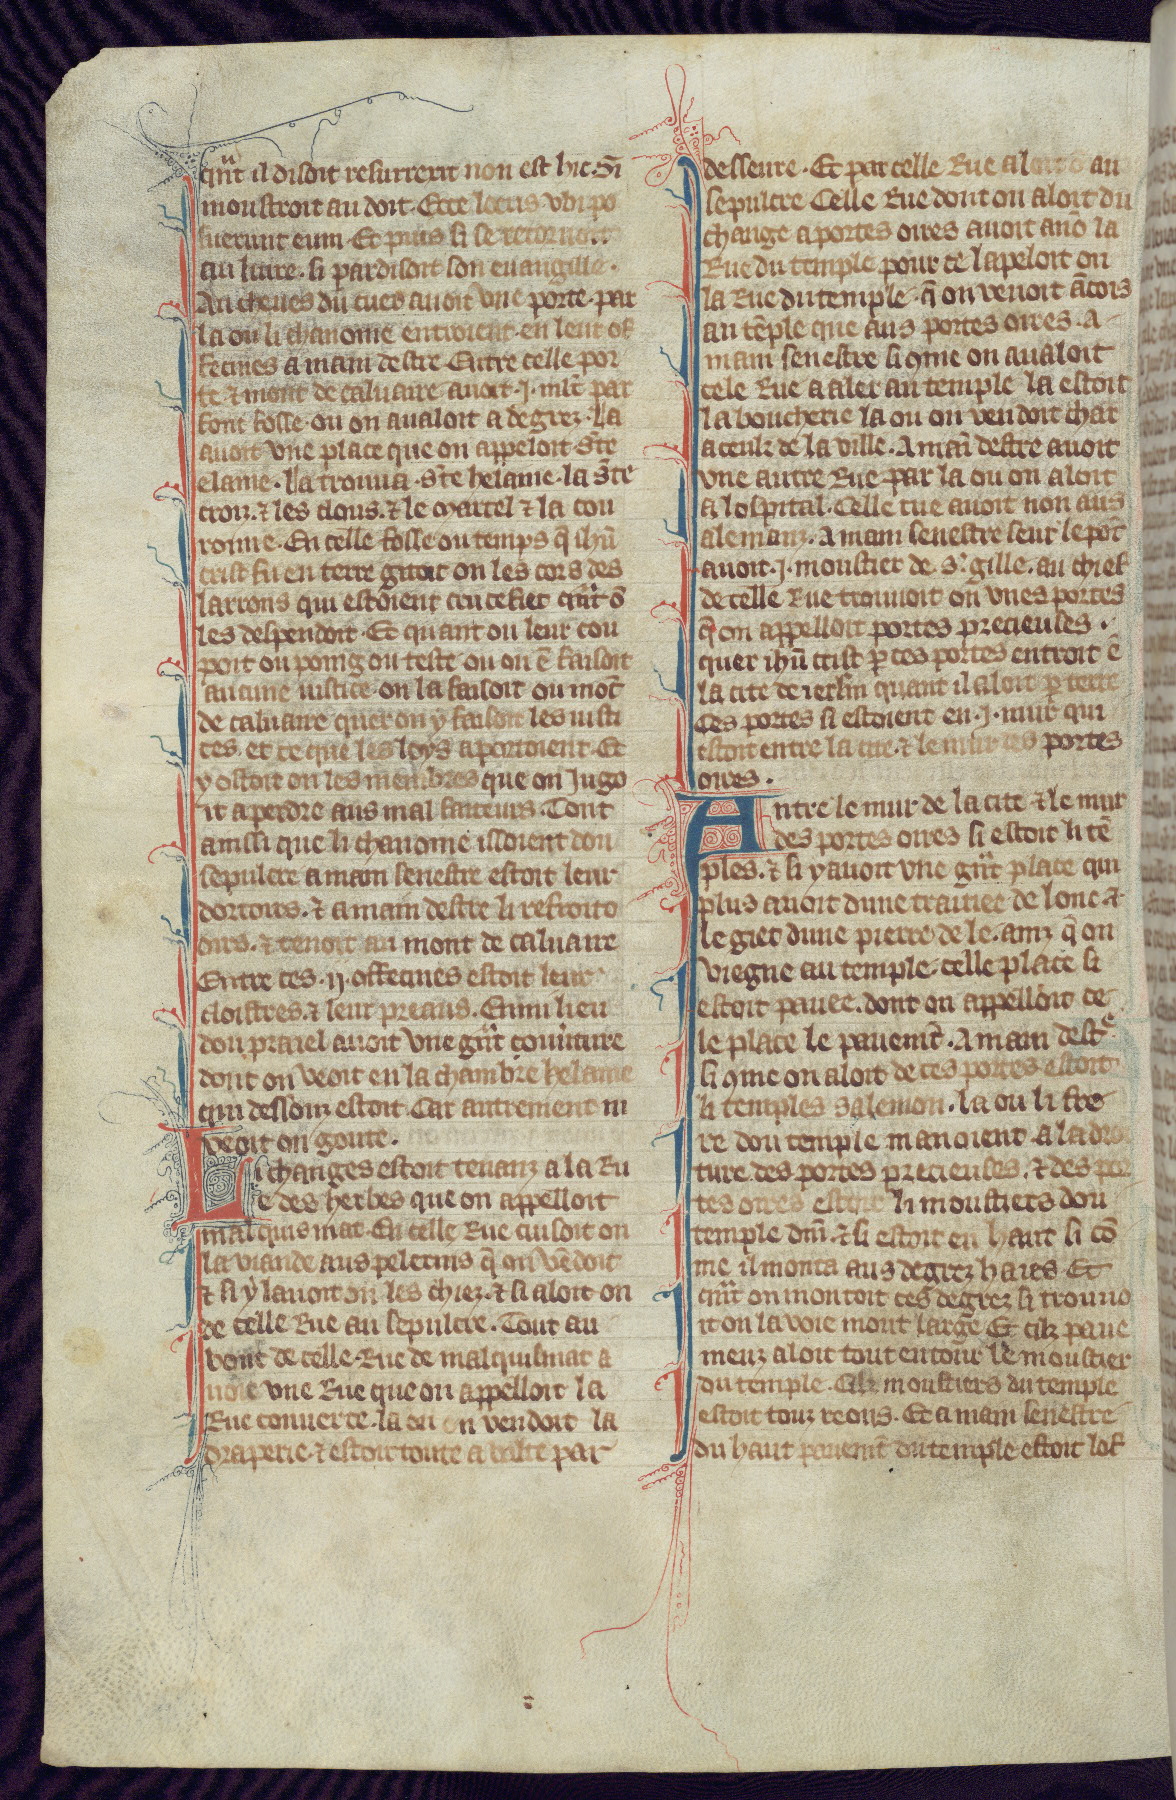 qnt il disoit resurrexit non est hic. Si
moustroit au doit. Ecce locus vbi po
suerunt eum. Et puis si se retornoit
au liure. si pardisoit son euangille.
Au cheues du cuer auoit vne porte. par
la ou li chanoine entroient. en leur of
fecines a main destre. Entre celle por
te ⁊ mont de caluaire auoit .j. mlt par
font fosse. ou on aualoit a degrez. La
auoit vne place que on appeloit Ste
elaine. la trouua. Ste helaine. la ste
croiz. ⁊ les clous. ⁊ le martel ⁊ la cou
ronne. En celle fosse ou temps q̄ ihū
crist fu en terre gitoit on les cors des
larrons qui estoient crucefiet qnt ō
les despendoit. Et quant ou leur cou
poit ou poing ou teste ou on ē faisoit
aucune iustice. on la faisoit ou mōt
de caluaire quer on y faisoit les iusti
ces. et ce que les loys aportoient. Et
y ostoit on les membres que on Iugo
it a perdre aus mal faiteurs. Tout
ainssi que li chanoine issoient dou
sepulcre a main senestre estoit leur
dortoirs. ⁊ a main destre li refroito
oirs. ⁊ tenoit au mont de caluaire
Entre ces .ij. offecines estoit leur
cloistres. ⁊ leur preaus. Enmi lieu
dou praiel auoit vne gn̄t couuiture
dont on veoit en la chambre helaine
qui dessouz estoit. Car autrement ni
veoit on goute.
Li changes estoit tenanz a la Ru
e des herbes que on appelloit
malquismat. En celle Rue cuisoit on
la viande aus pelerins q̄ on vēdoit
⁊ si y lauoit on les chiez. ⁊ si aloit on
de celle Rue au sepulcre. Tout au
vont de celle Rue de malquismat a
uoie vne Rue que on appelloit la
Rue couuerte. la ou on vendoit la
draperie. ⁊ estoit toute a volte par
desseure. Et par celle Rue aloit ō au
sepulcre Celle Rue dont on aloit du
change a portes oires auoit anō la
Rue du temple pour ce lapeloit on
la Rue du temple. q̄ on venoit ācois
au tēple que aus portes oires. A
main senestre si qme on aualoit
cele Rue a aler au temple la estoit
la boucherie la ou on vendoit char
a ceulz de la ville. A main destre auoit
vne autre Rue par la ou on aloit
a lospital. Celle rue auoit non aus
alemanz. A main senestre seur le pōt
auoit .j. moustier de S. gille. au chief
de celle Rue trouuoit on vnes portes
q̄ on appelloit portes precieuses.
quer ihū crist p ces portes entroit ē
la cite de ierlm quant il aloit p terre
Ces portes si estoient en .j. mur qui
estoit entre la cite. ⁊ le mur des portes
oires.
Antre le mur de la cite ⁊ le mur
des portes oires si estoit li tē
ples. ⁊ si y auoit vne gn̄t place qui
plus auoit dune traitiee de lonc ⁊
le giet dune pierre de le. ainz q̄ on
viegne au temple. celle place si
estoit pauee. dont on appelloit ce
le place le pauemt. A main destre
si qme on aloit de ces portes estoit
li temples salemon. la ou li fre
re dou temple manoient. a la dro
iture. des portes precieuses. ⁊ des por
tes oires estoit li moustiers dou
temple dm̄. ⁊ si estoit en haut si cō
me il monta aus degrez hares Et
qnt on montoit ces degrez si trouuo
it on la voie mont large Et cilz paue
menz aloit tout entour le moustier
du temple. Cilz moustiers du temple
estoit touz reons. Et a main senestre
du haut pauemt du temple estoit lof